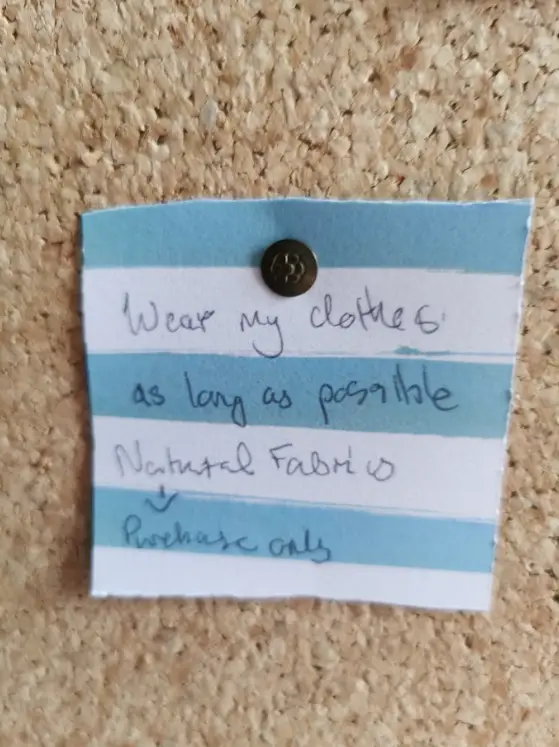 Wear my clothes
as long as possible
Natural Fabrics
Purchase only